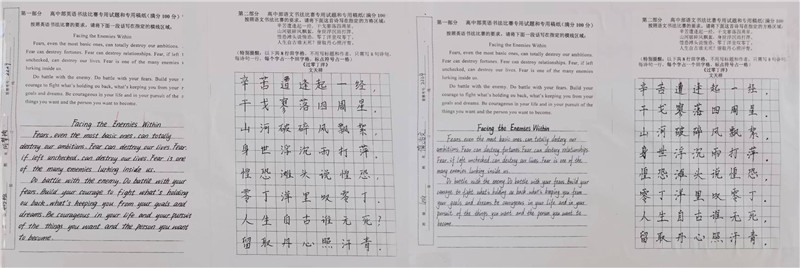 第一部分 高中部英语书法比赛专用试题和专用稿纸(满分100分)
Facing the Enemies Within
Fears, even the most basic ones, can totally destroy our ambitions.
Fear can destroy fortunes. Fear can destroy relationships. Fear, if left
unchecked, can destroy our lives. Fear is one of the many enemies
lurking inside us.
Do battle with the enemy. Do battle with your fears. Build your
courage to fight what's holding us back, what's keeping you from your
goals and dreams. Be courageous in your life and in your pursuit of the
things you want and the person you want to become.
Facing the Enemies Within
Fears, even the most basic ones, can totally
destroy our ambitions. Fear can destroy our lives. Fear,
if left unchecked, can destroy our lives. Fear is one
of the many enemies lurking inside us.
Do battle with the enemy. Do battle with your
fears. Build your courage to fight what's holding
us back, what's keeping you from your goals and
dreams. Be courageous in your life and your pursuit
of the things you want and the person you want
to become.
第二部分 高中部语文书法比赛专用试题和专用稿纸(满分100
《过零丁洋》
文天祥
辛苦遭逢起一经,
干戈寥落四周星。
山河破碎风飘絮,
身世浮沉雨打萍。
惶恐滩头说惶恐,
零丁洋里叹零丁。
人生自古谁无死?
留取丹心照汗青。
第一部分 高中部英语书法比赛专用试题和专用稿纸(满分100分)
Facing the Enemies Within
Fears, even the most basic ones, can totally destroy our ambitions.
Fear can destroy fortunes. Fear can destroy relationships. Fear, if left
unchecked, can destroy our lives. Fear is one of the many enemies
lurking inside us.
Do battle with the enemy. Do battle with your fears. Build your
courage to fight what's holding us back, what's keeping you from your
goals and dreams. Be courageous in your life and in your pursuit of the
things you want and the person you want to become.
Facing the Enemies Within
Fears, even the most basic ones, can totally destroy our
ambitions. Fear can destroy fortunes. Fear can destroy relationships.
Fear, if left unchecked, can destroy our lives. Fear is one of the
many enemies lurking inside us.
Do battle with the enemy. Do battle with your fears. Build your
courage to fight what's holding us back, what's keeping you from
your goals and dreams. Be courageous in your life and in your
pursuit of the things you want and the person you want to
become.
第二部分 高中部语文书法比赛专用试题和专用稿纸(满分100
《过零丁洋》
文天祥
辛苦遭逢起一经,
干戈寥落四周星。
山河破碎风飘絮,
身世浮沉雨打萍。
惶恐滩头说惶恐,
零丁洋里叹零丁。
人生自古谁无死?
留取丹心照汗青。